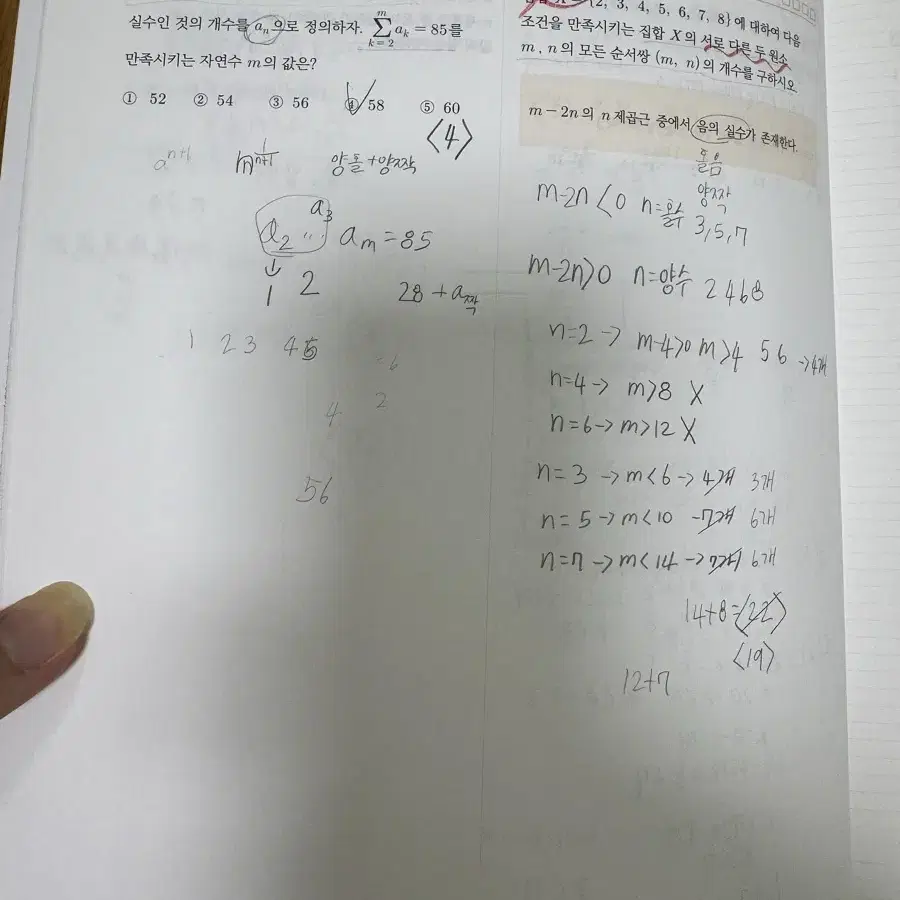 실수인 것의 개수를 aₙ으로 정의하자. \sum_{k=2}^{m} aₖ = 85를
만족시키는 자연수 m의 값은?
① 52 ② 54 ③ 56 ④ 58 ⑤ 60
<4>
aⁿ⁺¹
양홀+양짝
a₂ ‥ a₃ aₘ=85
↓
1 2
28 + a짝
1 2 3 4 5
6
4 2
56
{2, 3, 4, 5, 6, 7, 8}에 대하여 다음
조건을 만족시키는 집합 X의 서로 다른 두 원소
m, n의 모든 순서쌍 (m, n)의 개수를 구하시오
m-2n의 n제곱근 중에서 음의 실수가 존재한다.
홀음
양짝
m-2n<0 n=홀수 3,5,7
m-2n>0 n=양수 2 4 6 8
n=2 → m-4>0 m>4 5 6 → 4개
n=4 → m>8 X
n=6 → m>12 X
n=3 → m<6 → 4개 3개
n=5 → m<10 -7개 6개
n=7 → m<14 → 7개 6개
14+8=<22>
<19>
12+7